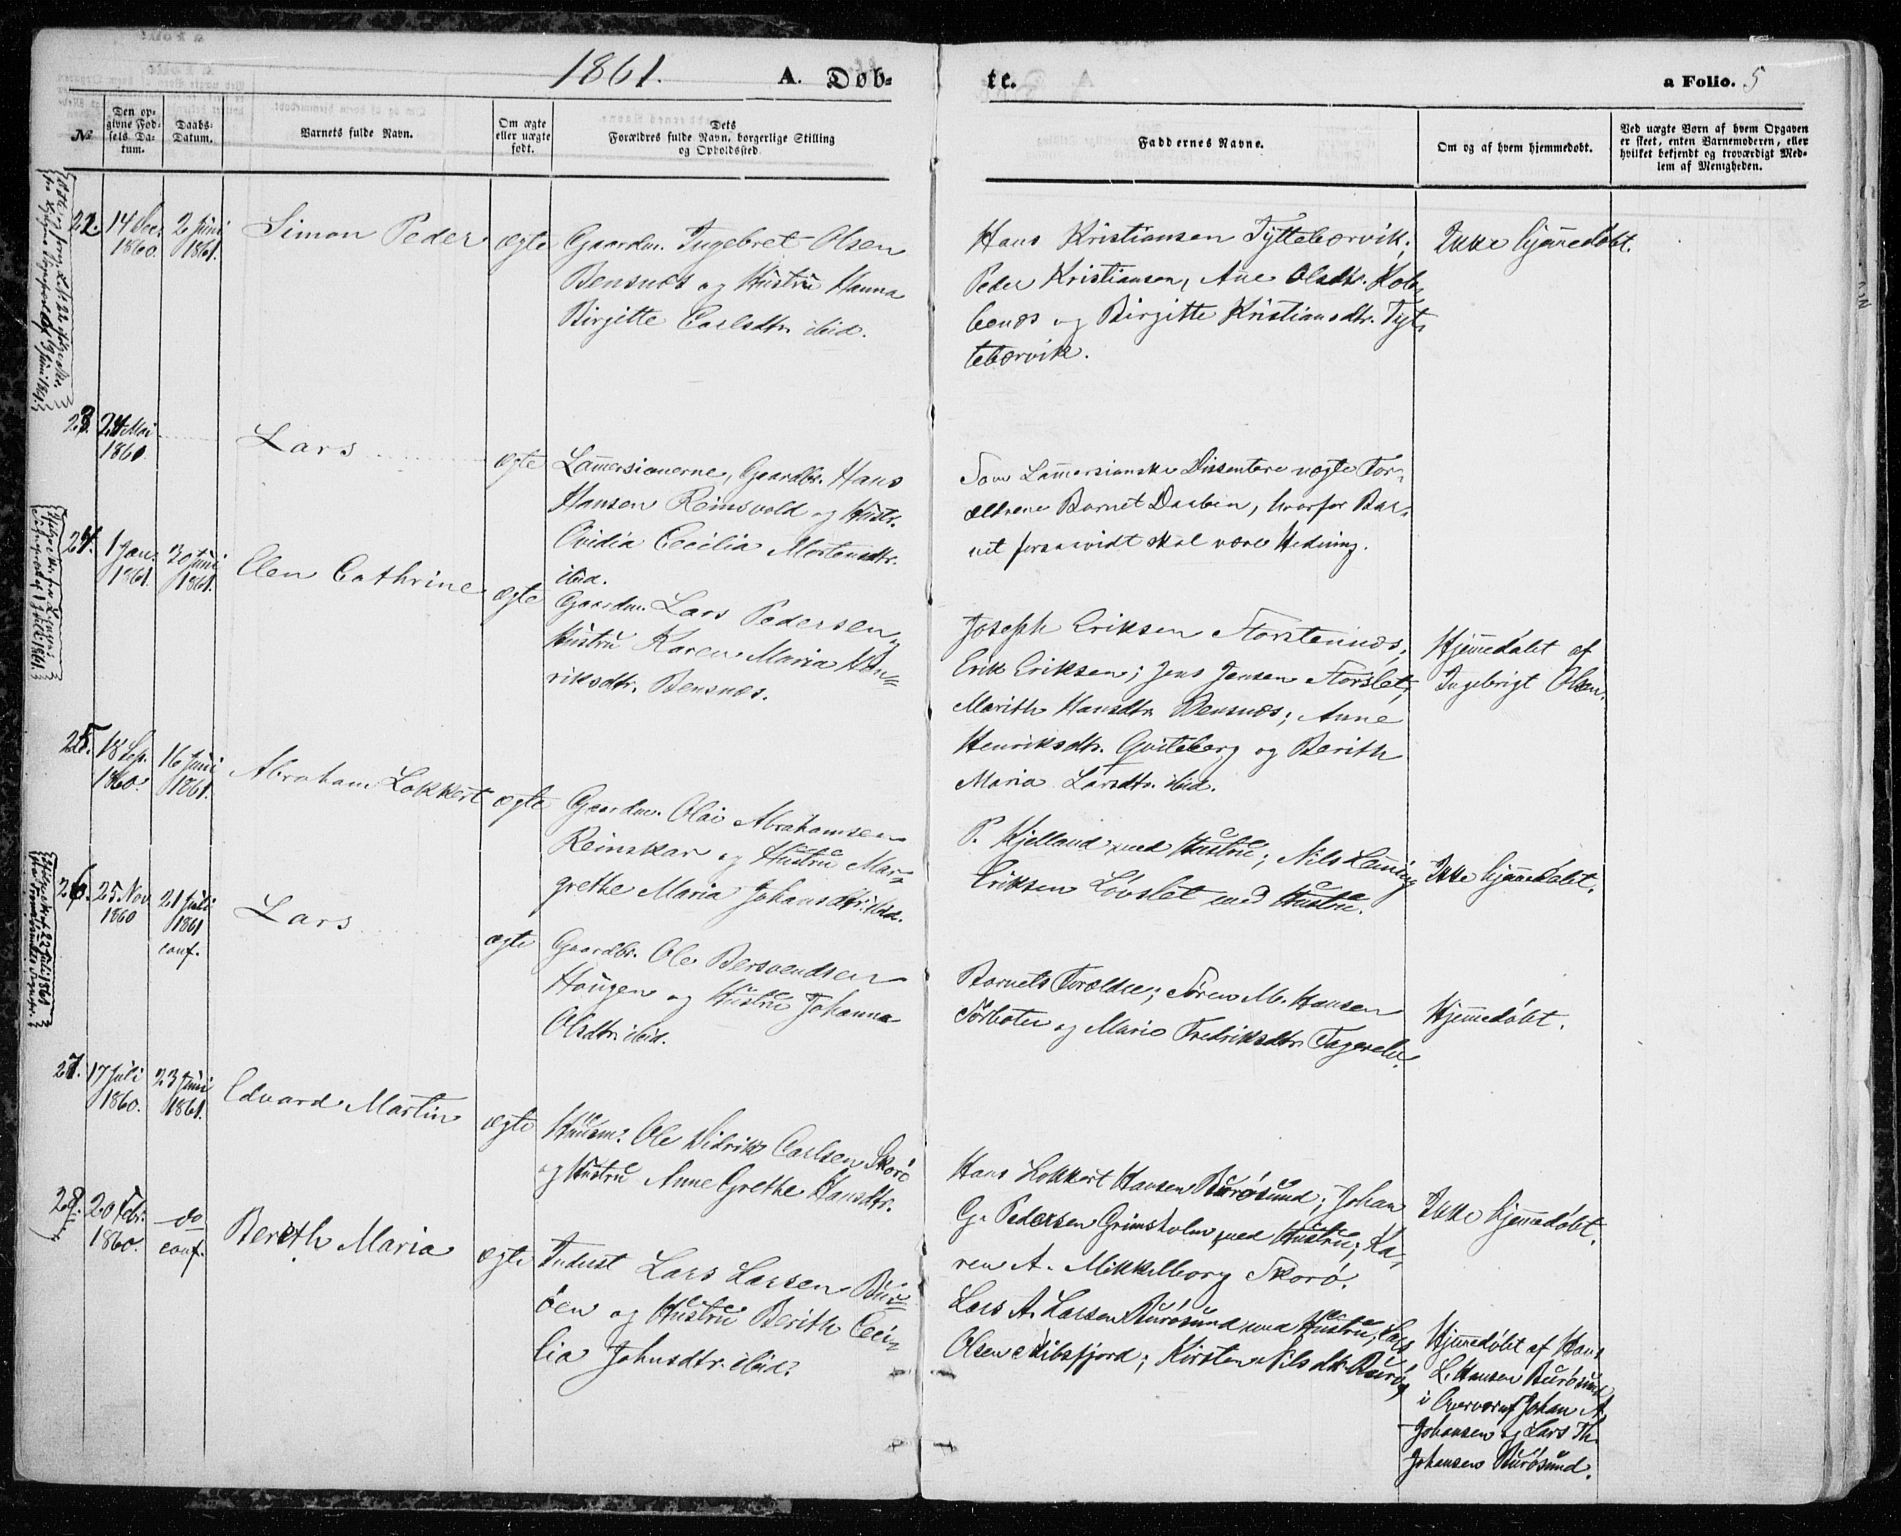 1861.
A. Døb-
te.
a Folio. 5
№
Den op-
givne Fød-
sels Da-
tum.
Daabs-
Datum.
Barnets fulde Navn.
Om ægte
eller uægte
født.
Dets
Forældres fulde Navn, borgerlige Stilling
og Opholdssted.
Faddernes Navne.
Om og af hvem hjemmedøbt.
Ved uægte Børn af hvem Opgaven
er skeet, enten Barnemoderen, eller
hvilket bekjendt og troværdigt Med-
lem af Menigheden.
22.
14 Dec.
1860.
2 Juni
1861.
Simon Peder
ægte
Gaardm. Ingebret Olsen
Bensnæs og Hustru Hanna
Birgitte Carlsdtr. ibid.
Hans Kristiansen Tyttebærvik;
Peder Kristiansen, Ane Olsdtr. Kob-
benæs og Birgitte Kristiansdtr. Tyt-
tebærvik.
Ikke hjemmedøbt.
23.
24 Mai
1860.
Lars
ægte
Lammersianerne, Gaardbr. Hans
Hansen Reinsvold og Hustr.
Ovidia Cecilia Mortensdtr.
ibid.
Som Lammersianske Dissentere nægte For-
ældrene Barnet Daaben, hvorfor Bar-
net forsaavidt skal være Hedning.
24.
1 Jan.
1861.
30 Juni
1861.
Elen Cathrine
ægte
Gaardm. Lars Pedersen og
Hustru Karen Maria Hen-
riksdtr. Bensnæs.
Joseph Eriksen Storstennæs,
Erik Eriksen; Jens Jensen Storslet,
Marith Hansdtr. Bensnæs; Anne
Henriksdtr. Qviteberg og Berith
Maria Larsdtr. ibid.
Hjemmedøbt af
Ingebrigt Olsen.
25.
18 Sep.
1860.
16 Juni
1861.
Abraham Lokkert
ægte
Gaardm. Olai Abrahamsen
Reinskar og Hustru Mar-
grethe Maria Johansdtr. ibid.
P. Kjelland med Hustru; Nils Leming
Eriksen Løvslet med Hustru.
Ikke hjemmedøbt.
26.
25 Nov.
1860
21 Juli
1861
conf.
Lars
ægte
Gaardbr. Ole Bersvendsen
Haugen og Hustru Johanna
Olsdtr. ibid.
Barnets Forældre; Søren M. Hansen
Sørboten og Marie Fredriksdtr. Fagereli.
Hjemmedøbt.
27.
17 Juli
1860.
23 Juni
1861.
Edvard Martin
ægte
Huusm. Ole Didrik Carlsen Skorø
og Hustru Anne Grethe Hansdtr.
Hans Lokkert Hansen Burøsund; Johan
G. Pedersen Grimsholm med Hustru; Ka-
ren A. Mikkelborg Skorø.
Ikke hjemmedøbt.
28.
20 Febr.
1860.
do
conf.
Berith Maria
ægte
Inderst Lars Larsen Bur-
øen og Hustru Berith Ceci-
lia Johnsdtr. ibid.
Lars A. Larsen Burøsund med Hustru; Lars
Olsen Skibsfjord; Kirsten Nilsdtr. Burø,
Hjemmedøbt af Hans
L. Hansen Burøsund
i Overvær af Johan A.
Johansen og Lars Th.
Johansen Burøsund.